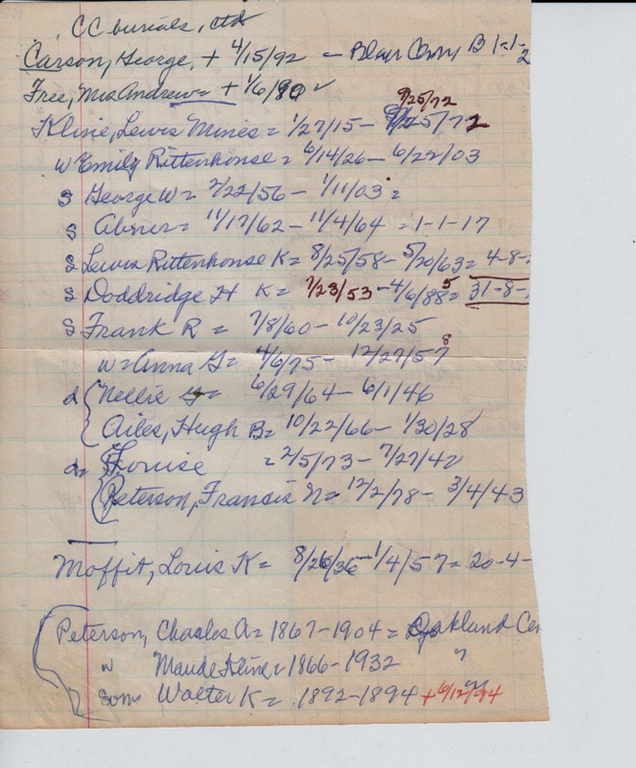 CC burials, ctd
Carson, George, + 4/15/92 — Blair Cem, B 1-1-2
Free, Mrs Andrew = + 1/6/90 ✓
9/25/72
Kline, Lewis Mines = 1/27/15 — 9/25/72
w Emily Rittenhouse = 6/14/26 — 6/22/03
s George W = 2/22/56 — 1/11/03 =
s Abner = 11/17/62 — 11/4/64 = 1-1-17
s Lewis Rittenhouse K = 8/25/58 — 5/20/63 = 4-8-
s Doddridge H K = 7/23/53 — 4/6/885 = 31-8-
s Frank R = 7/8/60 — 10/23/25
w = Anna G = 4/6/75 — 12/27/578
d { Nellie = 6/29/64 — 6/1/46
Ailes, Hugh B = 10/22/66 — 1/30/28
d = Louise = 2/5/73 — 7/27/42
{ Peterson, Francis N = 12/2/78 — 3/4/43
Moffit, Louis K = 8/26/36 — 1/4/57 = 20-4-
Peterson, Charles A = 1867-1904 = Oakland Cem
w Maude Kline = 1866-1932 "
son Walter K = 1892-1894 "